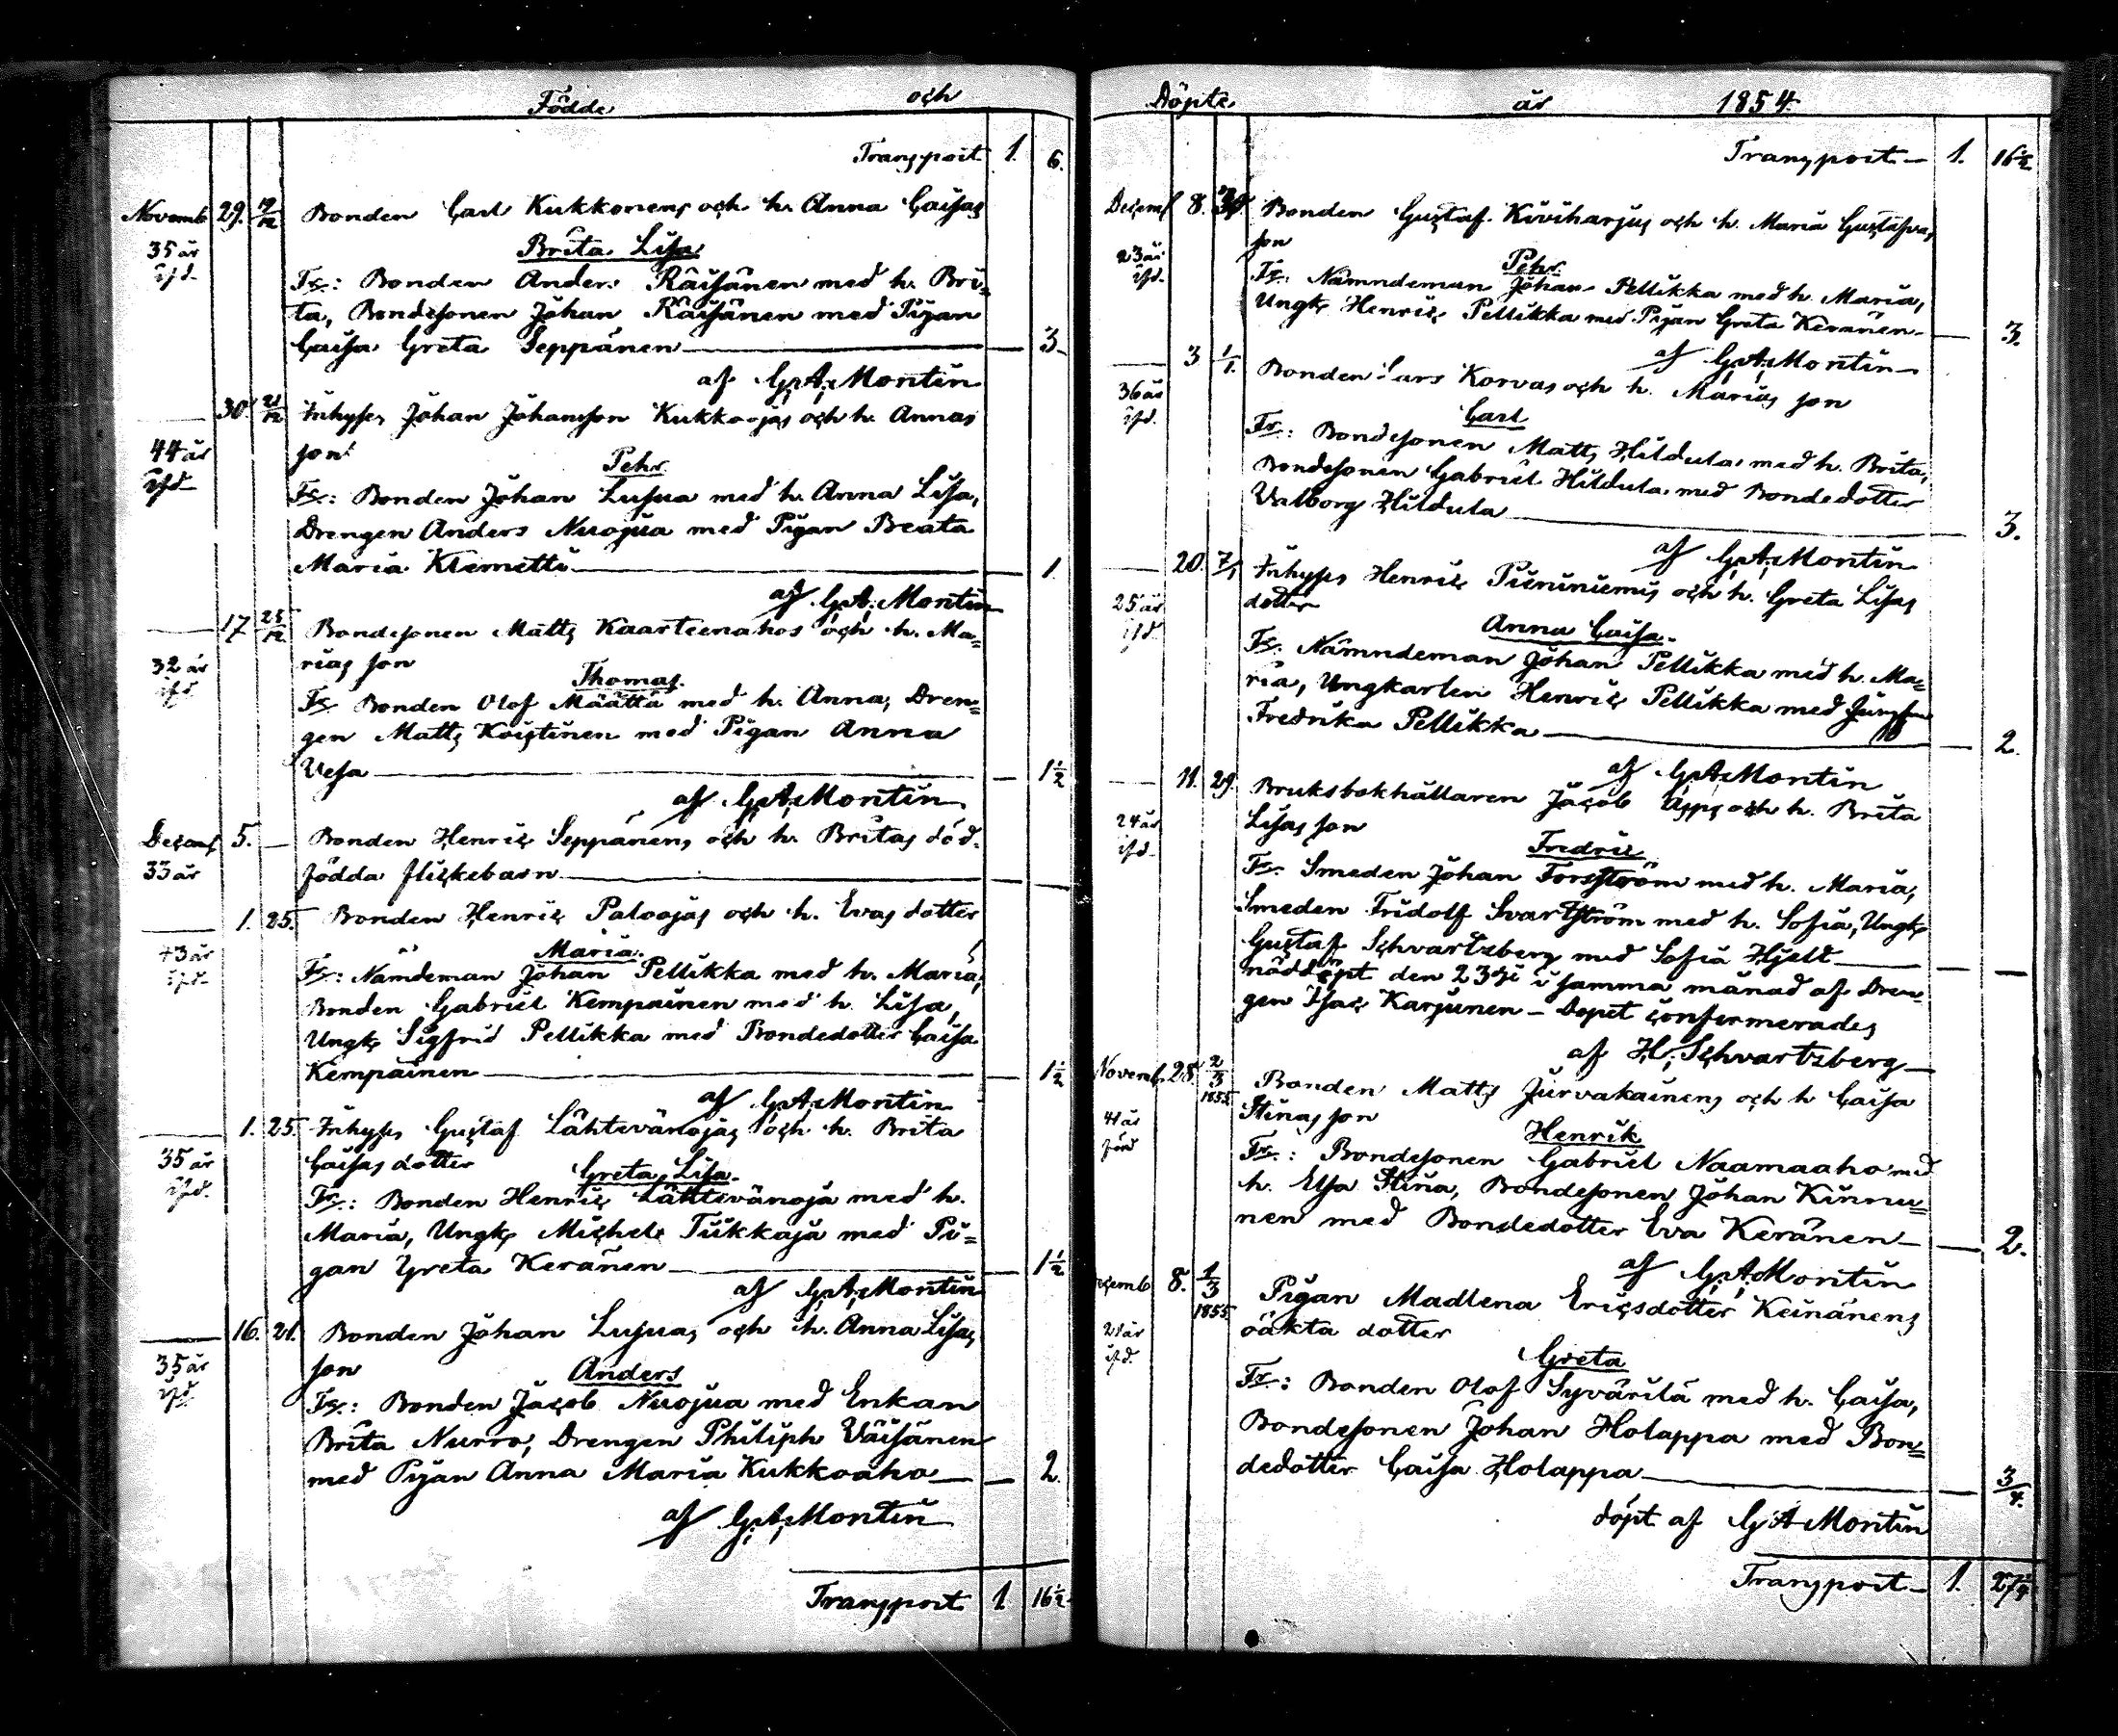 Födde och
Transport 1. 6.
Novemb 29. 19/12 Bonden Carl Kukkonens och h. Anna Caisas
35 år Brita Lisa
ifd. Fr: Bonden Anders Räisänen med h. Bri=
ta, Bondesonen Johan Räisänen med Pigan
Caisa Greta Seppänen — 3.
af G.A. Montin
30. 21/12 Inhyses Johan Johansson Kukkoojas och h. Annas
44 år son Pehr
ifd. Fr: Bonden Johan Lujua med h. Anna Lisa,
Drengen Anders Nuojua med Pigan Beata
Maria Klemetti — 1.
af G.A. Montin
17 25/12 Bondesonen Matts Kaarteenahos och h. Ma=
32 år rias son Thomas.
ifd. Fr Bonden Olof Määttä med h. Anna, Dren=
gen Matts Koistinen med Pigan Anna
Vesa — 1 1/2
af G.A. Montin
Decemb 5. — Bonden Henric Seppänens och h. Britas död=
33 år födda flickebarn —
1. 25. Bonden Henric Paloojas och h. Evas dotter
43 år Maria.
ifd. Fr: Nämdeman Johan Pellikka med h. Maria,
Bonden Gabriel Kempainen med h. Lisa,
Ungk Sigfrid Pellikka med Bondedotter Caisa
Kempainen — 1 1/2
af G.A. Montin
1. 25. Inhyses Gustaf Lähtevänojas och h. Brita
35 år Caisas dotter Greta Lisa.
ifd. Fr: Bonden Henric Lähtevänoja med h.
Maria, Ungk Michel Tikkaja med Pi=
gan Greta Keränen — 1 1/2
af G.A. Montin
16. 21. Bonden Johan Lujuas och h. Anna Lisas
35 år son Anders
ifd. Fr: Bonden Jacob Nuojua med Enkan
Brita Nurro, Drengen Philiph Väisänen
med Pigan Anna Maria Kukkoaho — 2.
af G.A. Montin
Transport 1 16 1/2
Döpte år 1854.
Transport — 1. 16 1/2
Decemb 8. Bonden Gustaf Kiviharjus och h. Maria Gustafvas
23 år son Pehr
ifd. Fr: Nämndeman Johan Pellikka med h. Maria,
Ungk Henric Pellikka med Pigan Greta Keränen — 3.
af G.A. Montin
3 1/1. Bonden Lars Korvas och h. Marias son
36 år Carl
ifd. Fr: Bondesonen Matts Hildula med h. Brita,
Bondesonen Gabriel Hildula med Bondedotter
Valborg Hildula — 3.
af G.A. Montin
20. 7/1 Inhyses Henric Pieniniemis och h. Greta Lisas
25 år dotter Anna Caisa.
ifd. Fr: Nämndeman Johan Pellikka med h. Ma=
ria, Ungkarlen Henric Pellikka med Jungfru
Fredrika Pellikka — 2.
af G.A. Montin
11. 29. Bruksbokhållaren Jacob Äpps och h. Brita
24 år Lisas son Fredric
ifd. Fr. Smeden Johan Forsström med h. Maria,
Smeden Fridolf Svartström med h. Sofia, Ungk
Gustaf Schvartzberg med Sofia Hjelt —
nöddöpt den 23dje i samma månad af Dren=
gen Isac Karjunen — Dopet confirmerades
af H. Schvartzberg —
Novemb. 28. 2/3 1855 Bonden Matts Jurvakainens och h Caisa
41 år Stinas son Henrik
Fr: Bondesonen Gabriel Naamaaho med
h. Elsa Stina, Bondesonen Johan Kinnu=
nen med Bondedotter Eva Keränen — 2.
af G.A. Montin
ecemb 8. 1/3 1855 Pigan Madlena Ericsdotter Keinänens
21 år oäkta dotter
ifd. Greta
Fr: Bonden Olof Syvärilä med h. Caisa,
Bondesonen Johan Holappa med Bon=
dedotter Caisa Holappa — 3/4.
döpt af G A Montin
Transport — 1. 27 1/4